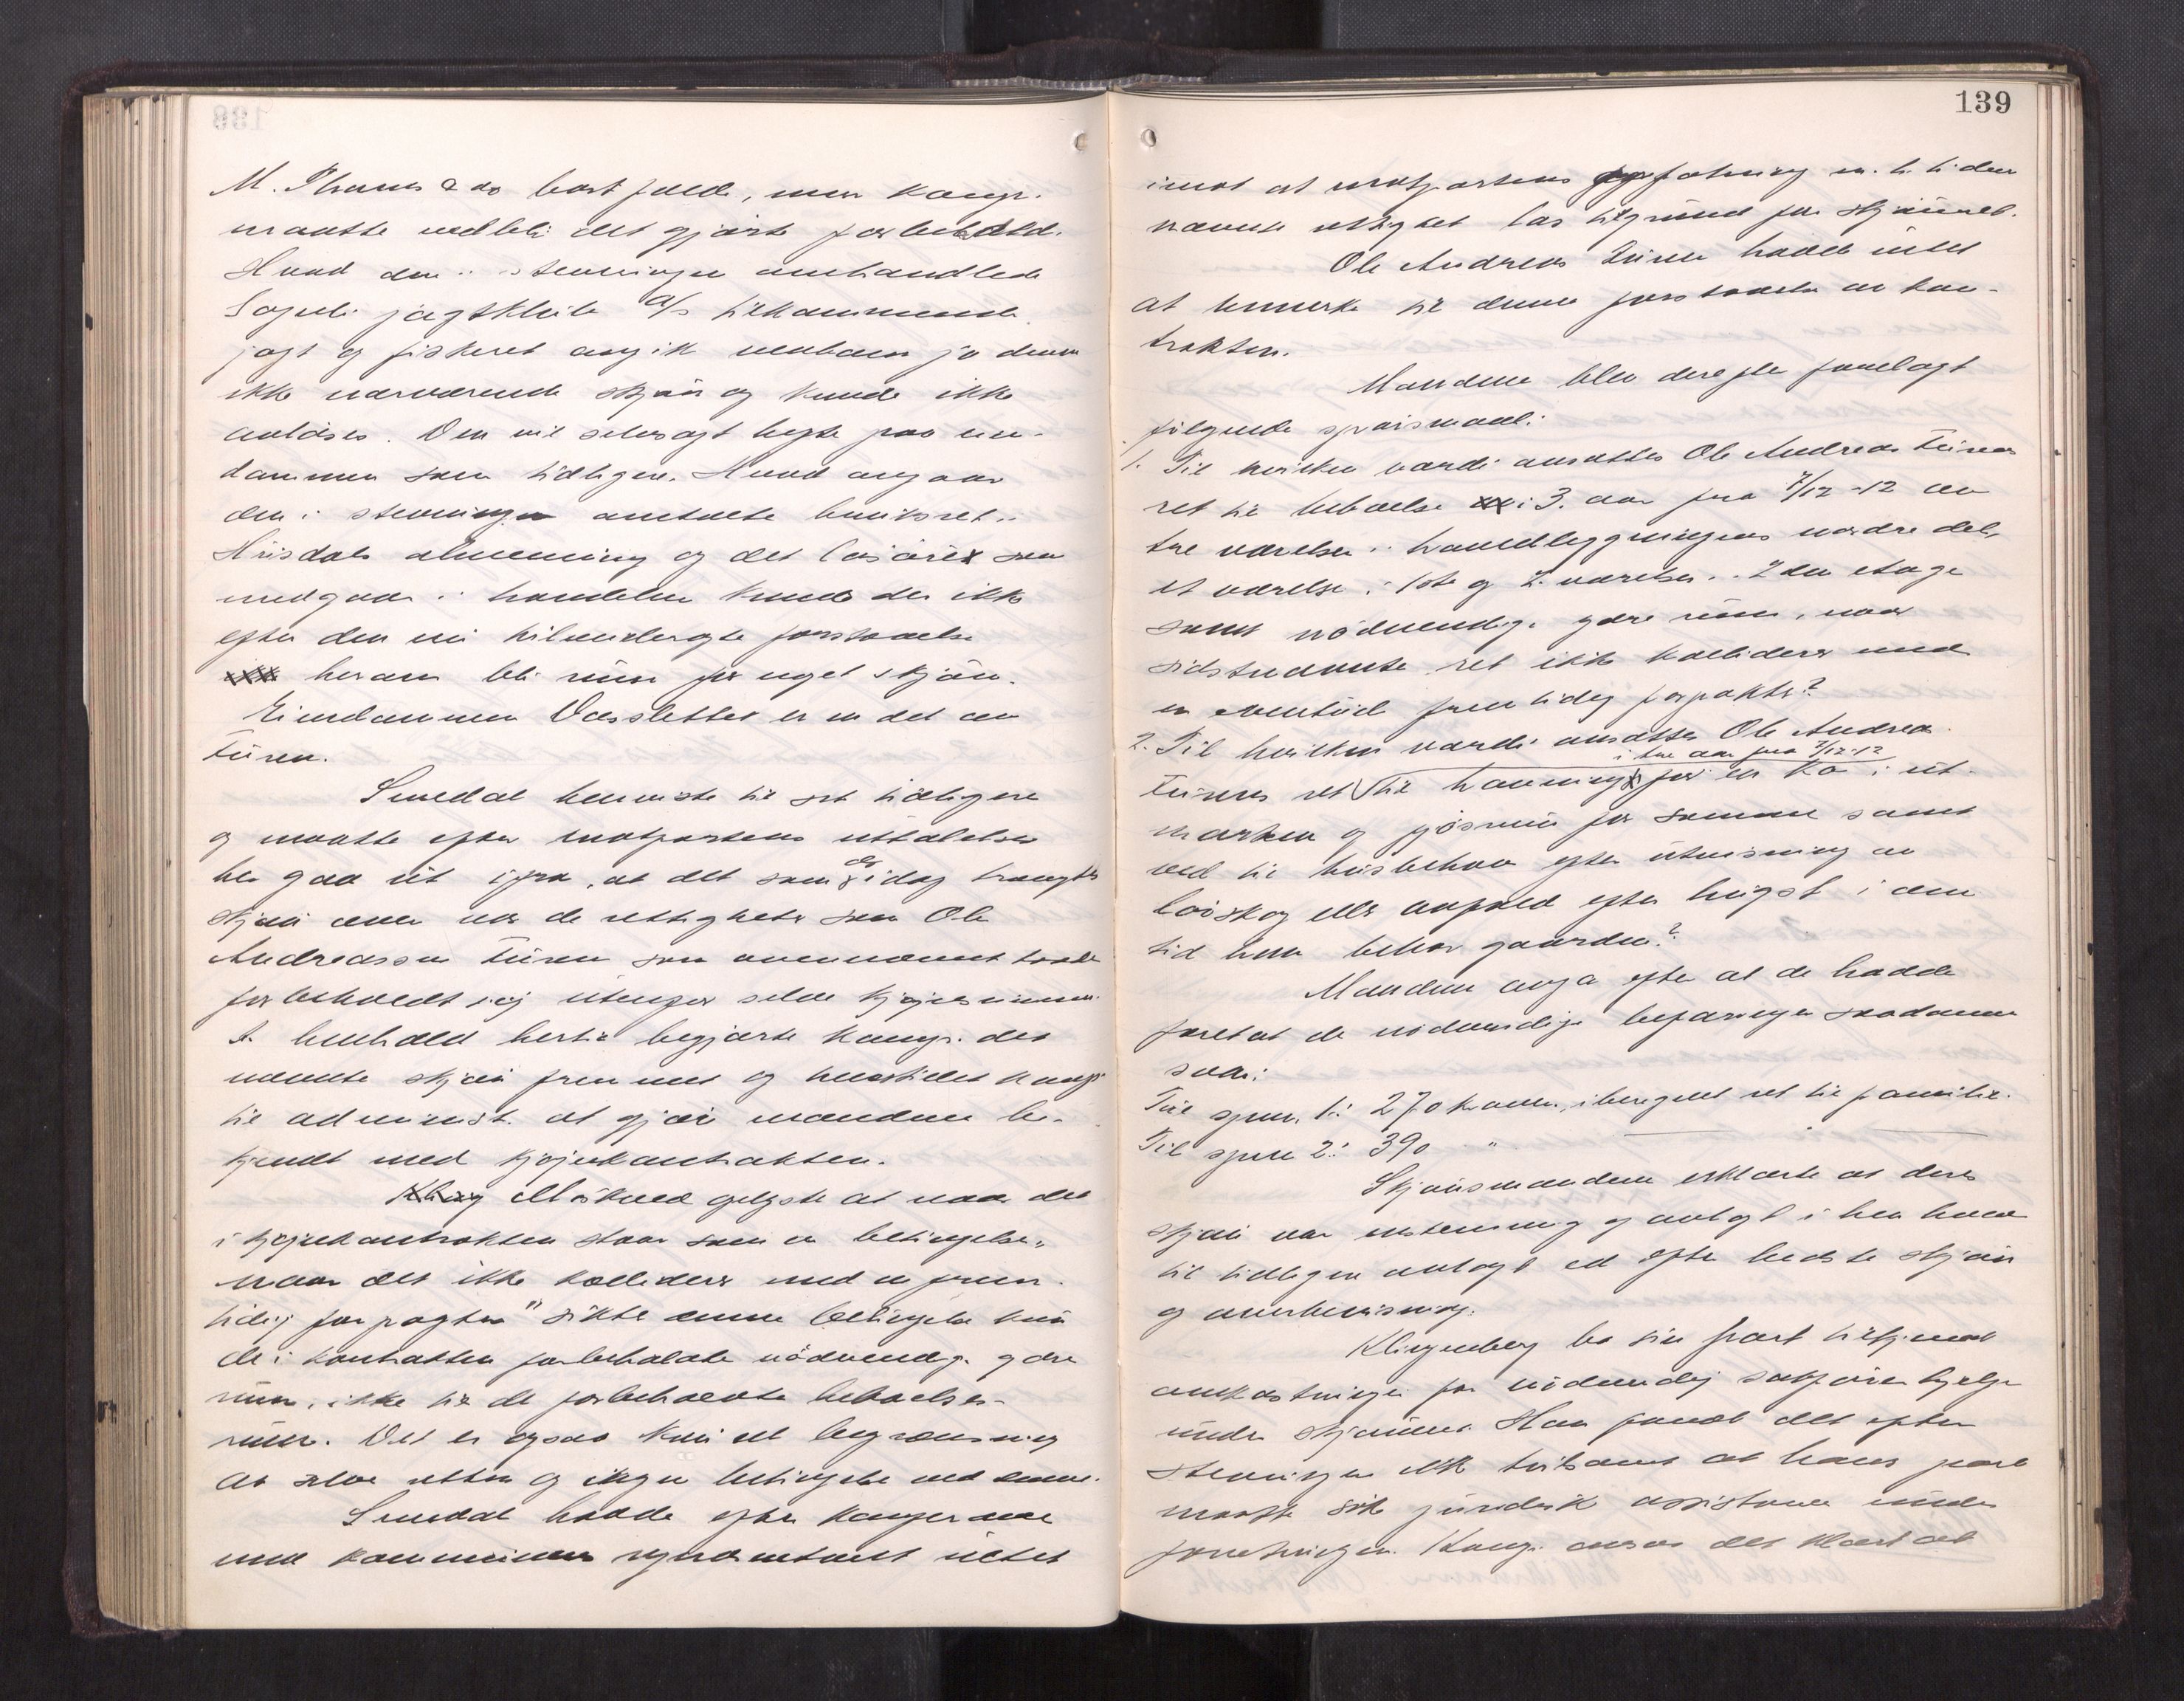 M. Thams & Co bortfaldt, men komp.
maatte vedbli det gjorte forbehold.
Hvad den i stevningen omhandlede
Sogul jagtklub A/s tilkommende
jagt og fiskeret angik vedkom jo denne
ikke nærværende skjøn og kunde ikke
avløses. Den vil selvsagt hefte paa eien-
dommen som tidligere. Hvad angaar
den i stevningen omtalte bruksret i
Husdals almenning og det løsøre som
medgaar i handelen kunde der ikke
efter den nu tilkjendegivne forstaaelse
herav bli rum for noget skjøn.
Eiendommen Væsslettet er en del av
Furen.
Smedal henviste til sit tidligere
og maatte efter motpartens uttalelser
her gaa ut ifra, at det som der idag trængtes
skjøn over var de rettigheter som Ole
Andreassen Furen som ovennævnt hadde
forbeholdt sig utenfor selve kjøpesummen.
I henhold hertil begjærte komp. det
nævnte skjøn fremmet og henstillet komp.
til administ. at gjøre mændene be-
kjendt med kjøpekontrakten.
Mørkved oplyste at naar det
i kjøpekontrakten staar som en betingelse „
naar det ikke kolliderer med en frem-
tidig forpagter" sikte denne betingelse kun
de i kontrakten forbeholdte nødvendige ydre
rum, ikke til de forbeholdte beboelses-
rum. Det er ogsaa kun en begrænsning
av selve retten og ingen betingelse ved denne.
Smedal hadde efter konferanse
med kommunens repræsentant intet
139
imot at motpartens opfatning m. h. t. den
nævnte rettighet las tilgrund for skjønnet.
Ole Andreas Furen hadde intet
at bemerke til denne forstaaelse av kon-
trakten.
Mændene blev derefter forelagt
følgende spørsmaal:
1. Til hvilken værdi ansættes Ole Andreas Furens
ret til beboelse i 3. aar fra 7/12-12 av
tre værelser i hovedbygningens nordre del,
et værelse i 1ste og 2. værelser i 2den etage
samt nødvendige ydre rum, naar
sidstnævnte ret ikke kolliderer med
en eventuel fremtidig forpakter?
2. Til hvilken værdi ansættes Ole Andreas
i tre aar fra 7/12-12
Furens ret til havning for en ko i ut-
marken og fjøsrum for samme samt
ved til husbehov efter utvisning av
løvskog eller avfald efter hugst i den
tid han bebor gaarden?
Mændene avga efter at de hadde
foretat de nødvendige befaringer saadanne
svar:
Til spm. 1: 270 kroner, iberegnet ret til familie.
Til spm 2: 390 "
Skjønsmændene erklærte at deres
skjøn var enstemmig og avlagt i henhold
til tidligere avlagt ed efter bedste skjøn
og overbevisning.
Klingenberg bad sin part tilkjendt
omkostninger for nødvendig sakførerhjelp
under skjønnet. Han fandt det efter
stevningen ikke tvilsomt at hans part
maatte søke juridisk assistance under
forretningen. Komp. ansaa det klart at